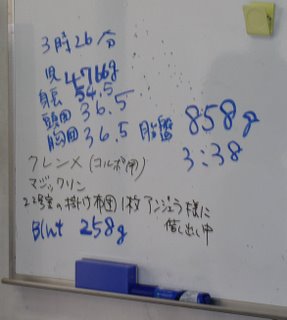 3時26分
児 4766g
身長 54.5
頭囲 36.5
胸囲 36.5 胎盤 858g
3:38
クレンメ(コルポ用)
マジックリン
22号室の掛け布団1枚アンジェラ様に
貸し出し中
Blut 258g